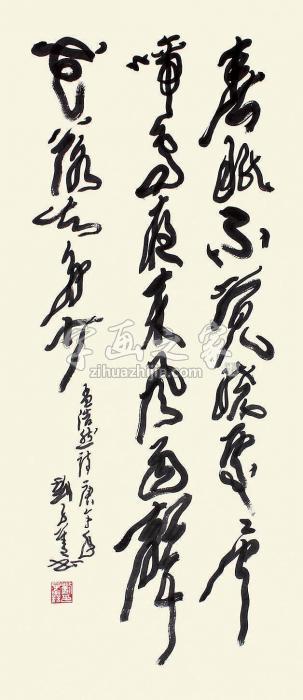 春眠不覺曉處々聞
啼鳥夜来風雨聲
花落知多少
孟浩然詩庚午年
字画之家
zihuazhijia.com